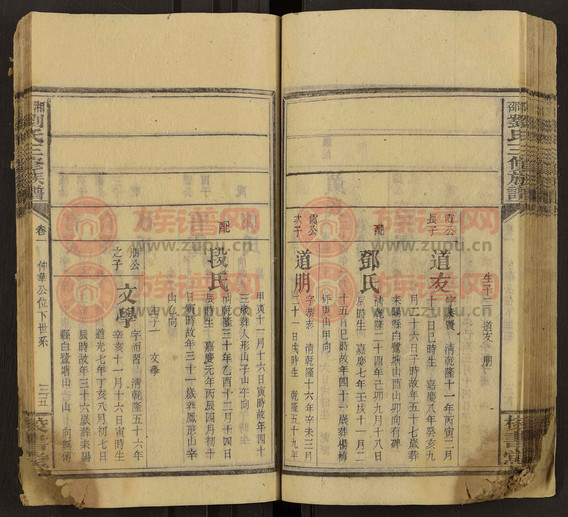 劉氏三修族譜
生子二 道友 朋
霞公長子
道友
字
清乾隆十一年丙寅二月
十一日巳時生 嘉慶八年癸亥九
月十六日子時故年五十七歲葬
耒陽縣白鷺塘山酉山卯向有碑
配
鄧氏
清乾隆二十四年己卯九月十八日
巳時生 嘉慶七年壬戌十一月二
十五日戌時故年四十一歲葬楊梅
山庚山甲向
霞公次子
道朋
字 志 清乾隆十六年辛未三月
二十一日戌時生 乾隆五十九年
甲寅十一月十六日寅時故年四十
三歲葬人形山子山午向
配
段氏
清乾隆三十年乙酉十二月十四日
辰時生 嘉慶元年丙辰四月初十
日寅時故年三十一歲葬鳳形山辛
山乙向
生子一 文學
朋公之子
文學
字而習 清乾隆五十六年
辛亥十一月十六日寅時生
道光七年丁亥八月初七日
辰時故年三十六歲葬耒陽
縣白鷺塘山
劉氏三修族譜
卷
仲華公位下世系
三五
校書堂
族谱网
www.zupu.cn
族谱网
www.zupu.cn